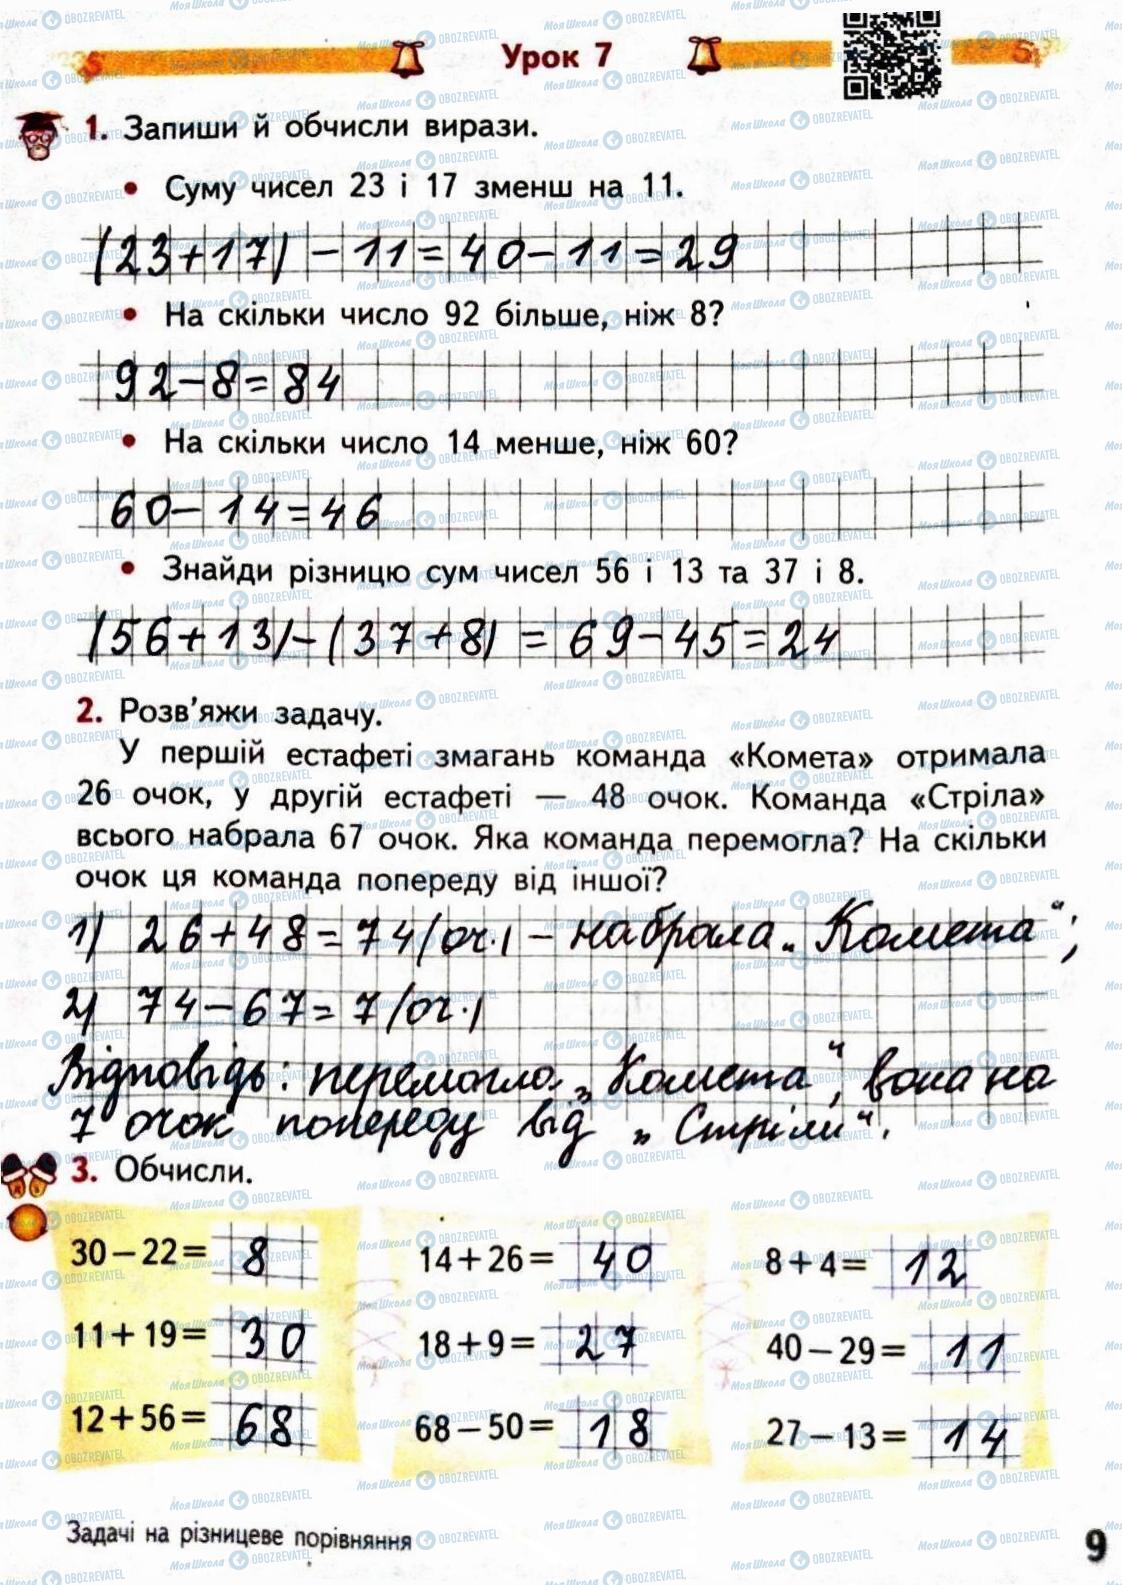 Урок 7
1. Запиши й обчисли вирази.
• Суму чисел 23 і 17 зменш на 11.
(23+17)-11=40-11=29
• На скільки число 92 більше, ніж 8?
92-8=84
• На скільки число 14 менше, ніж 60?
60-14=46
• Знайди різницю сум чисел 56 і 13 та 37 і 8.
(56+13)-(37+8)=69-45=24
2. Розв'яжи задачу.
У першій естафеті змагань команда «Комета» отримала
26 очок, у другій естафеті — 48 очок. Команда «Стріла»
всього набрала 67 очок. Яка команда перемогла? На скільки
очок ця команда попереду від іншої?
1) 26+48=74(оч.) - набрала „Комета“;
2) 74-67=7(оч.)
Відповідь: перемогла „Комета“, вона на
7 очок попереду від „Стріли“.
3. Обчисли.
30-22= 8 14+26= 40 8+4= 12
11+19= 30 18+9= 27 40-29= 11
12+56= 68 68-50= 18 27-13= 14
Задачі на різницеве порівняння
9
МояШкола OBOZREVATEL